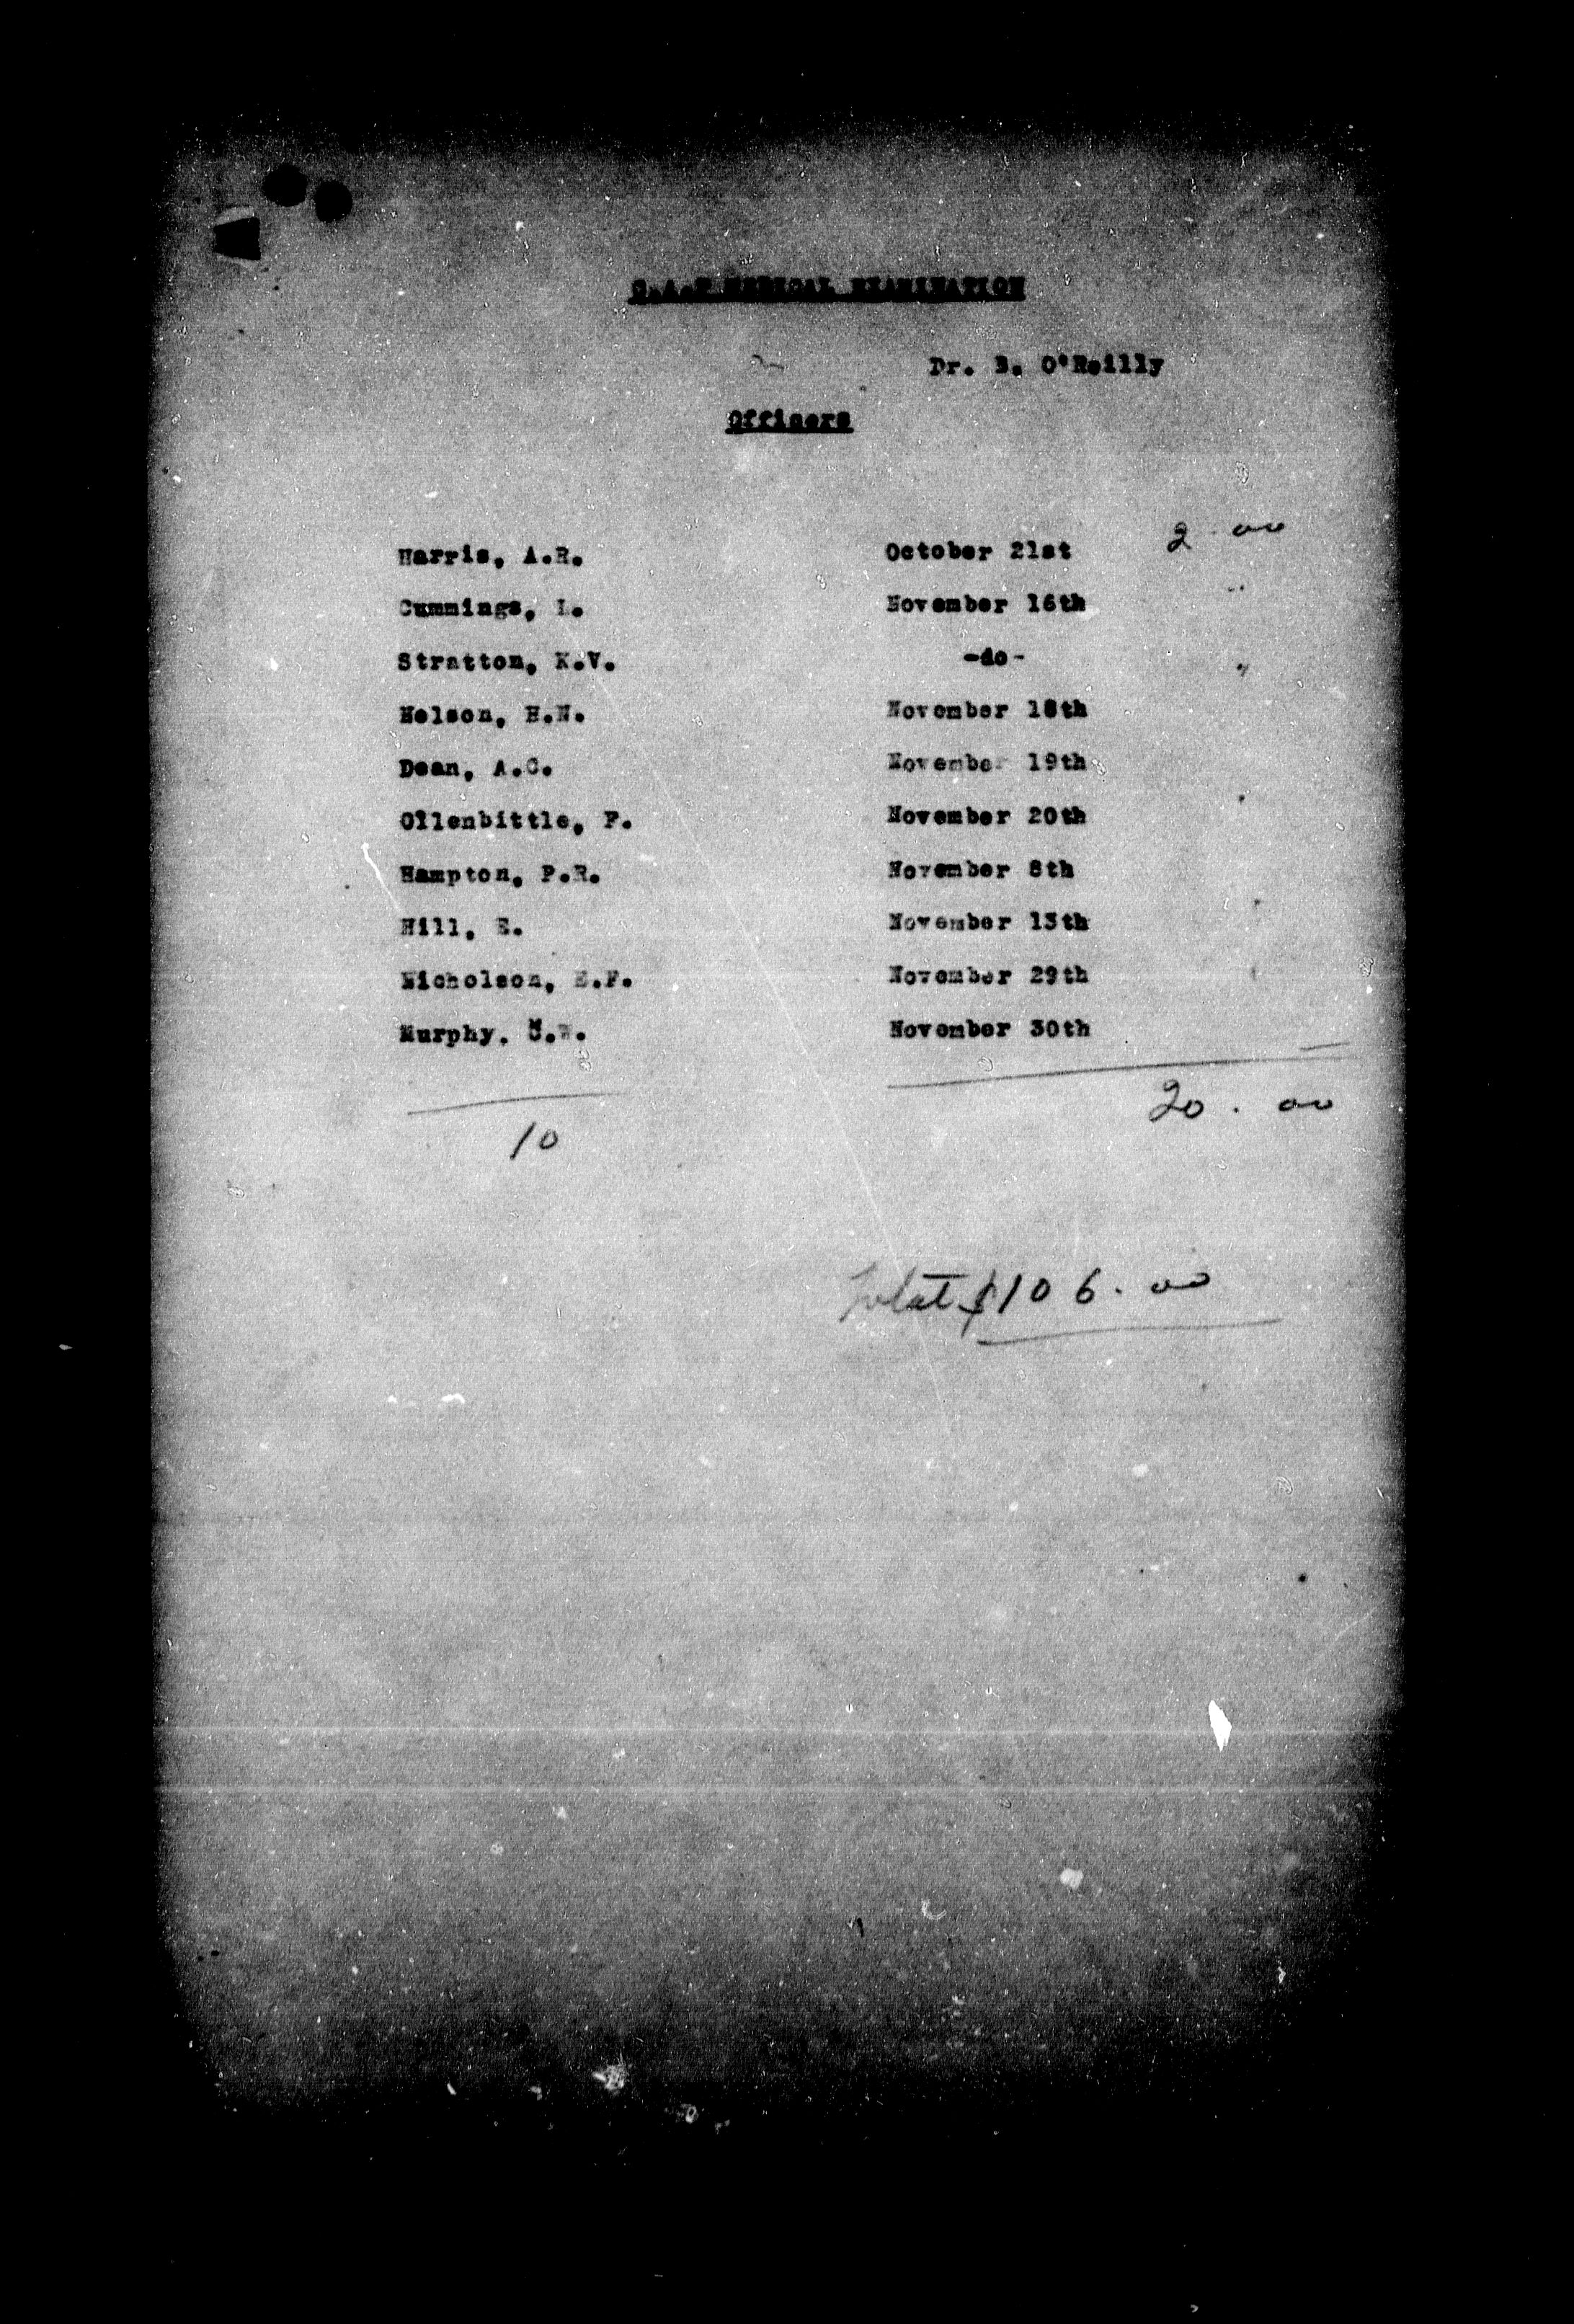 C.A.F MEDICAL EXAMINATION
Dr. B. O'Reilly
Officers
Harris, A.R. October 21st 2.00
Cummings, L. November 16th "
Stratton, K.V. -do- "
Nelson, H.N. November 18th
Dean, A.C. November 19th
Ollenbittle, F. November 20th
Hampton, P.R. November 8th
Hill, E. November 13th
Nicholson, E.F. November 29th
Murphy, November 30th
10 20.00
Total $106.00